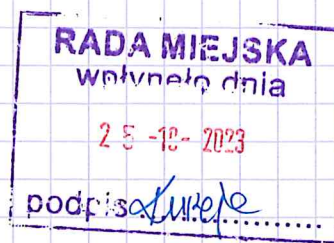 RADA MIEJSKA
wpłynęło dnia
25 -10- 2023
podpis